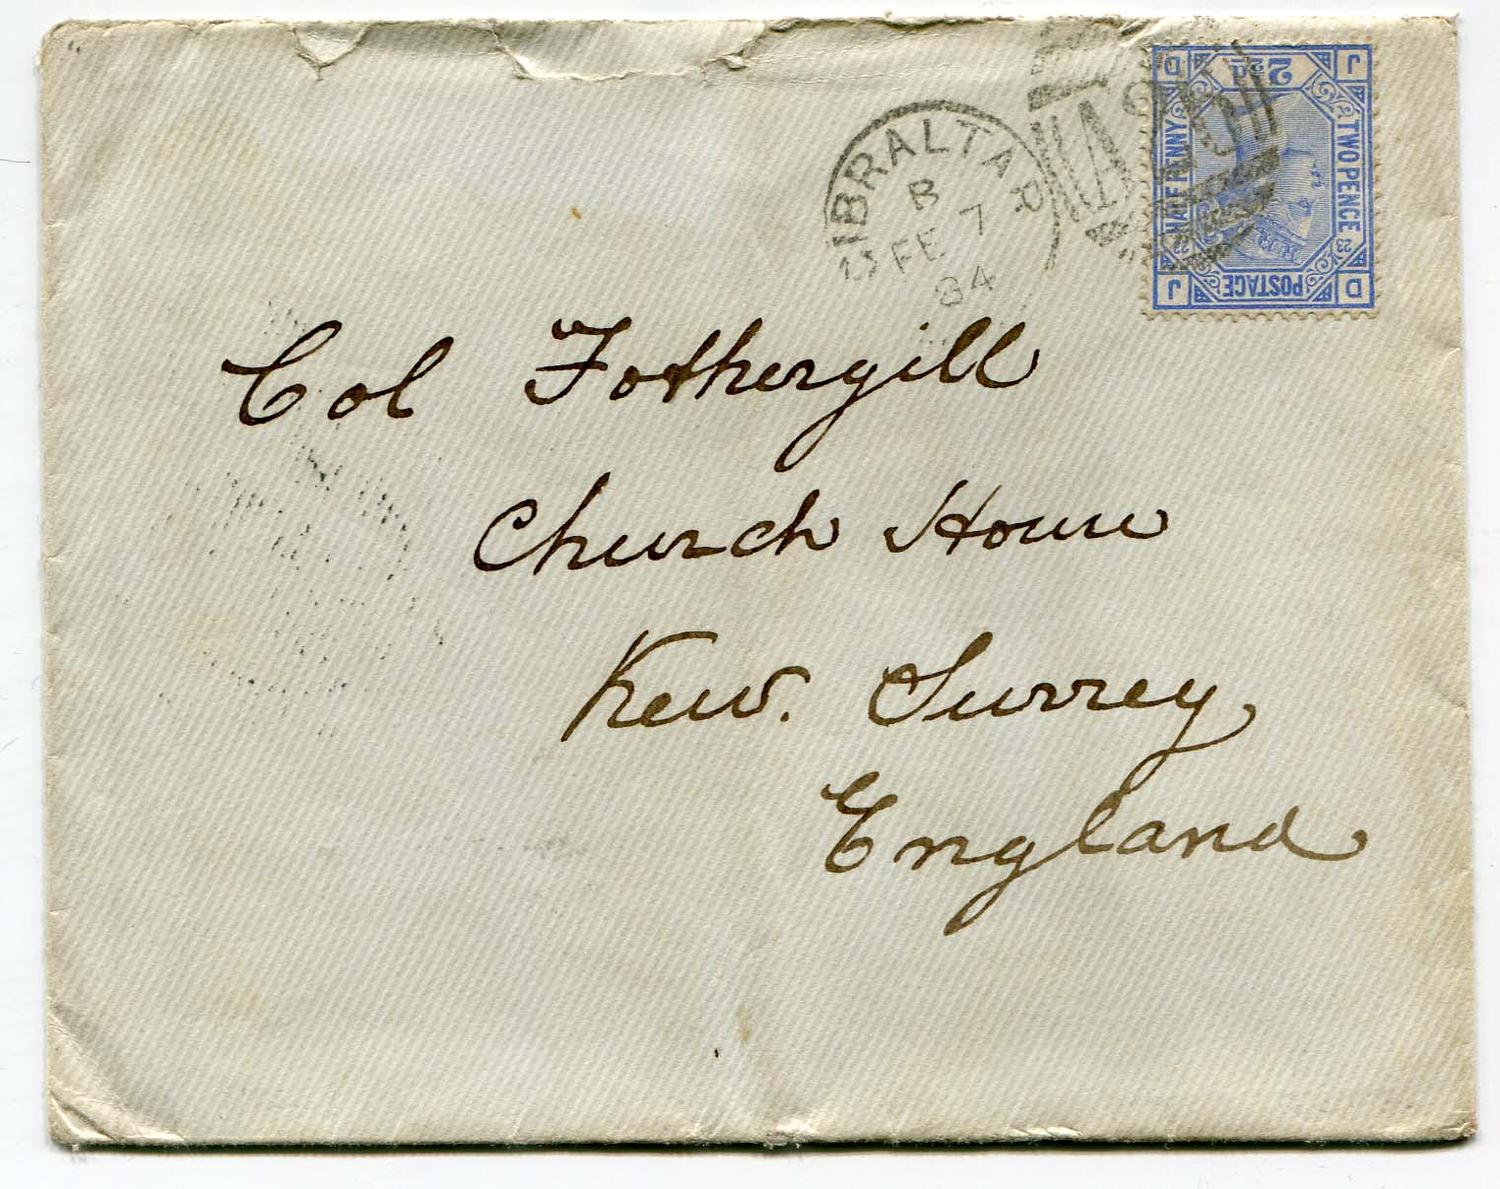 GIBRALTAR
B
FE 7
84
A26
J D
2½d
TWO PENCE HALF PENNY
23 23
POSTAGE
D J
Col Fothergill
Church House
Kew. Surrey
England